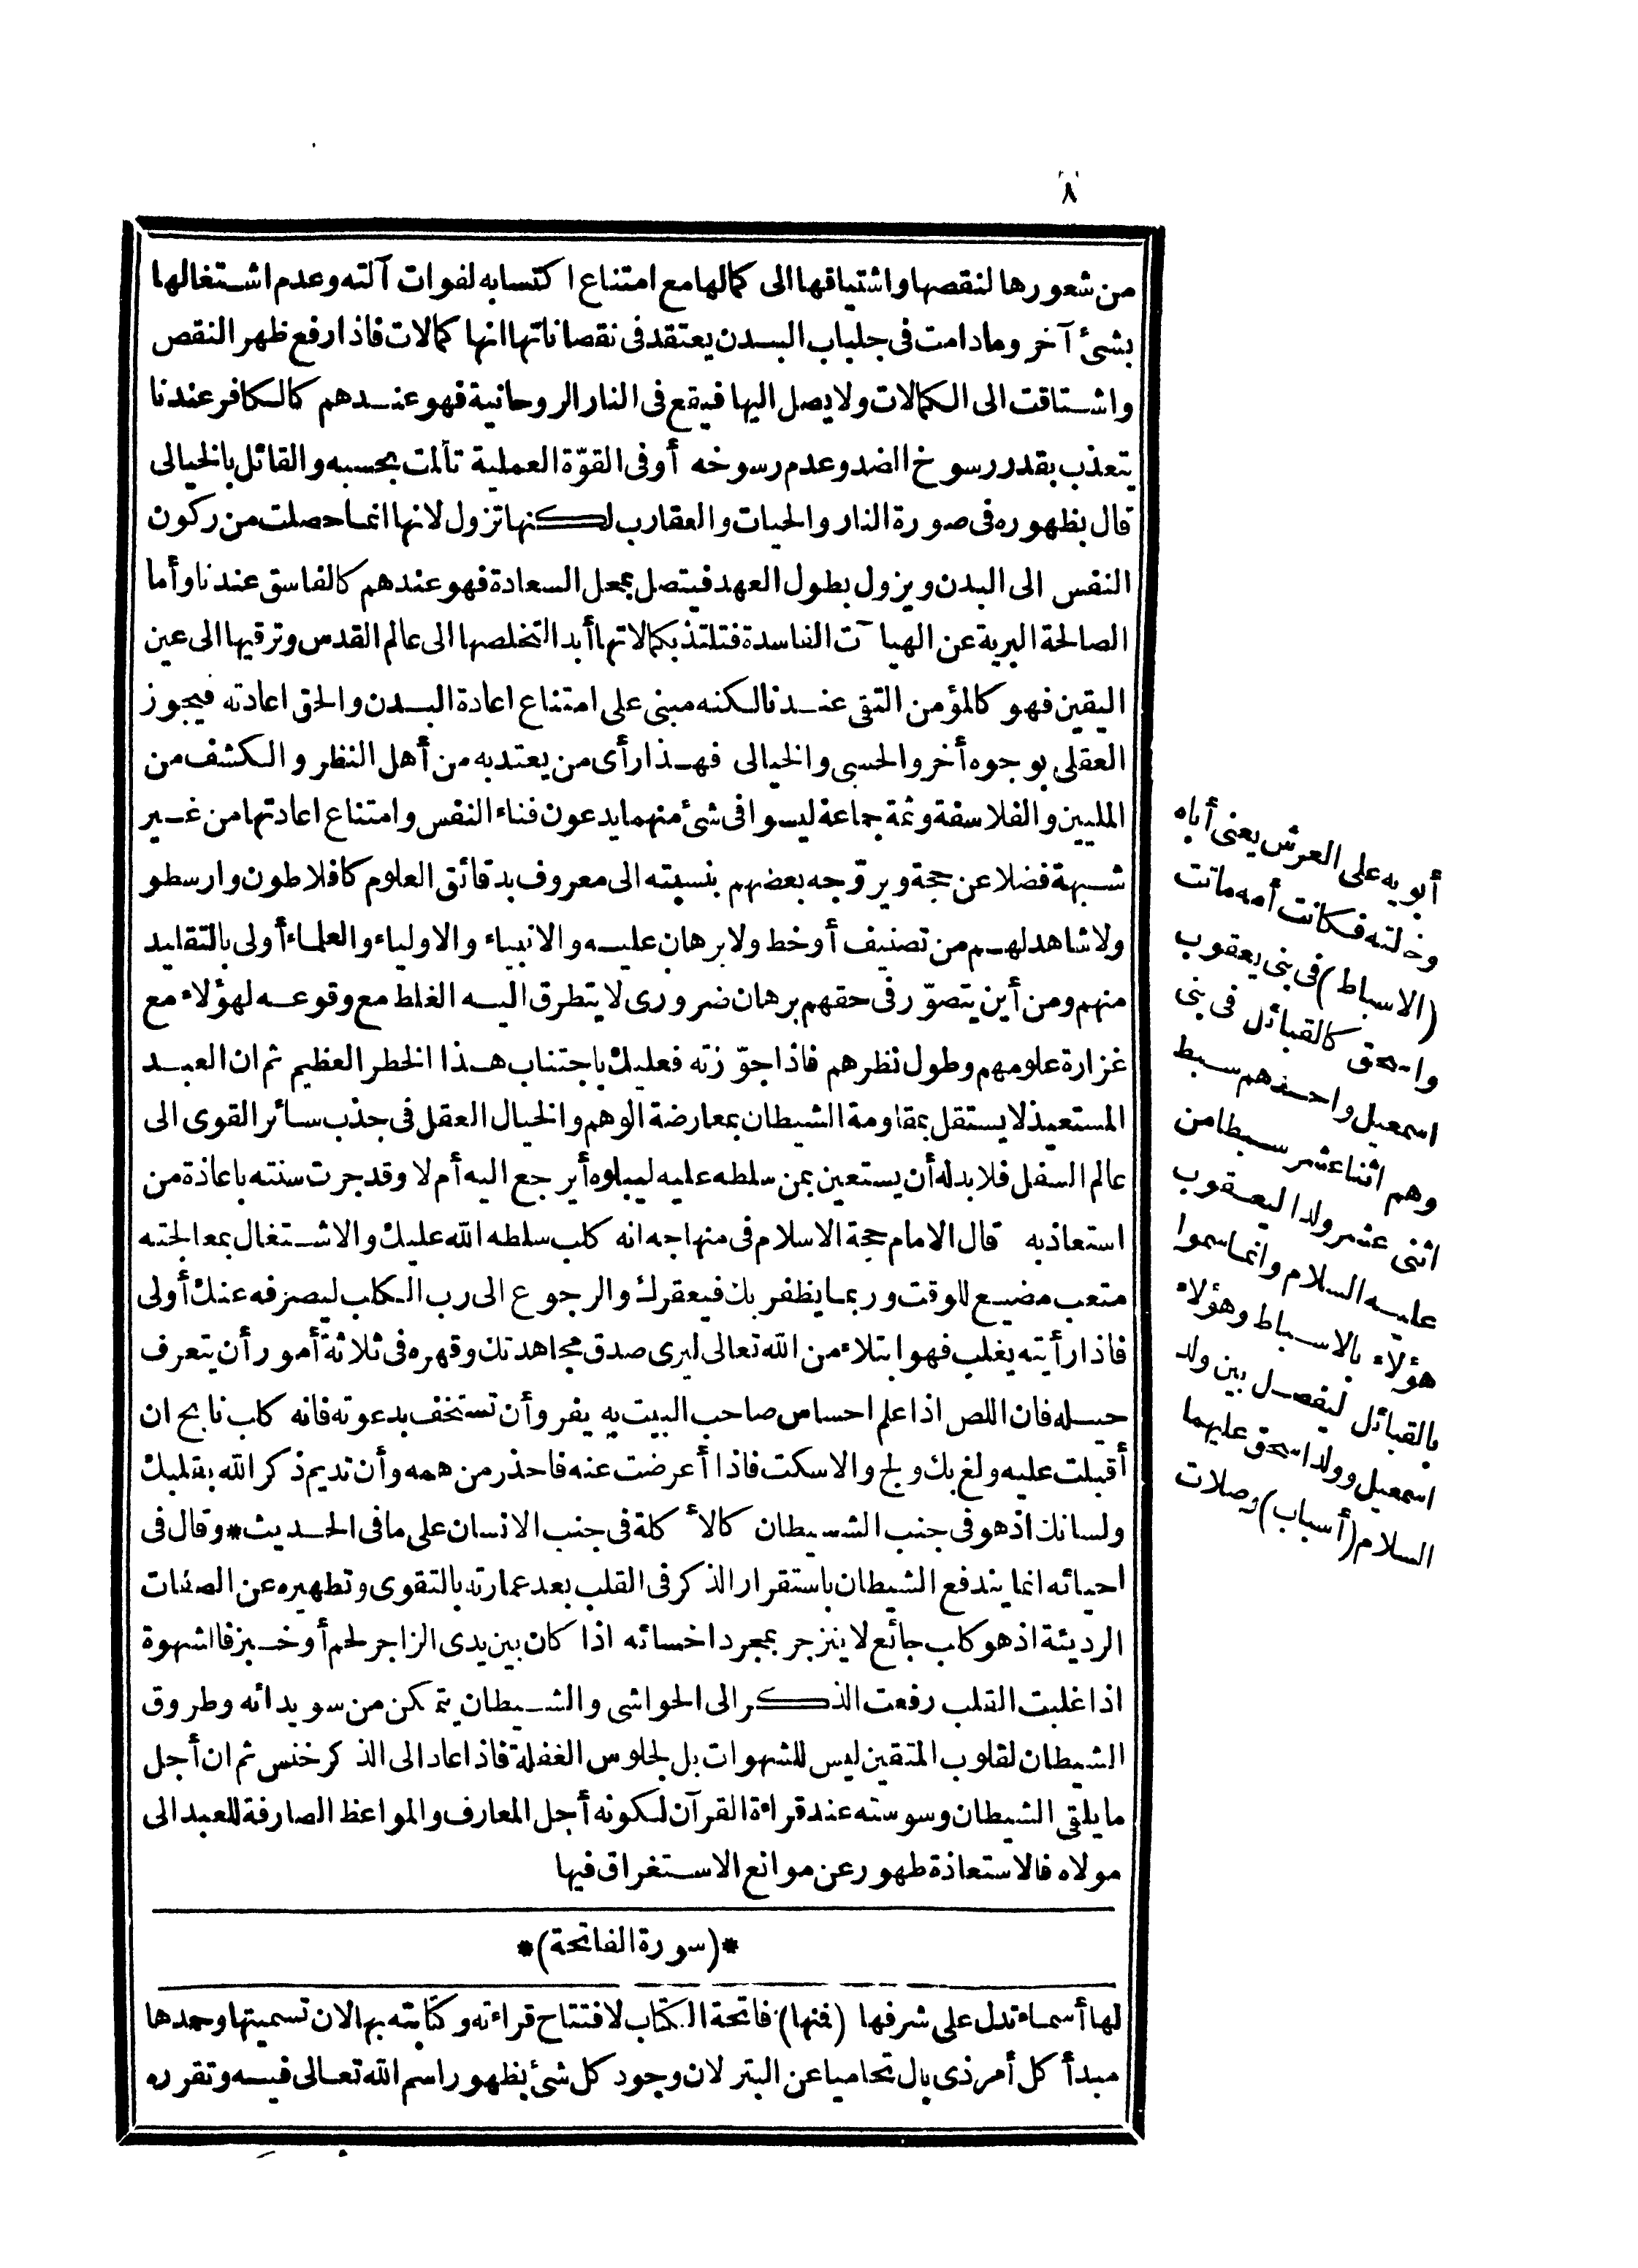 ٨
من شعورها لنقصها واشتياقها الى كمالها مع امتناع اكتسابه لفوات آلته وعدم اشتغالها
بشئ آخر وما دامت فى جلباب البدن يعتقد فى نقصاناتها انها كمالات فاذا رفع ظهر النقص
واشتاقت الى الكمالات ولا يصل اليها فيقع فى النار الروحانية فهو عندهم كالكافر عندنا
يتعذب بقدر رسوخ الضد وعدم رسوخه أو فى القوّة العملية تألمت بحسبه والقائل بالخيالى
قال بظهوره فى صورة النار والحيات والعقارب لكنها تزول لانها انما حصلت من ركون
النفس الى البدن ويزول بطول العهد فيتصل بمحل السعادة فهو عندهم كالفاسق عندنا وأما
الصالحة البرية عن الهيآت الفاسدة فتلتذ بكمالاتها أبدا لتخلصها الى عالم القدس وترقيها الى عين
اليقين فهو كالمؤمن التقى عندنا لكنه مبنى على امتناع اعادة البدن والحق اعادته فيجوز
العقلى بوجوه أخر والحسى والخيالى فهذا رأى من يعتد به من أهل النظر والكشف من
المليين والفلاسفة وثمة جماعة ليسوا فى شئ منهما يدعون فناء النفس وامتناع اعادتها من غير
شبهة فضلا عن حجة ويروّجه بعضهم بنسبته الى معروف بدقائق العلوم كافلاطون وارسطو
ولا شاهد لهم من تصنيف أو خط ولا برهان عليه والانبياء والاولياء والعلماء أولى بالتقليد
منهم ومن أين يتصوّر فى حقهم برهان ضرورى لا يتطرق اليه الغلط مع وقوعه لهؤلاء مع
غزارة علومهم وطول نظرهم فاذا جوّزته فعليك باجتناب هذا الخطر العظيم ثم ان العبد
المستعيذ لا يستقل بمقاومة الشيطان بمعارضة الوهم والخيال العقل فى جذب سائر القوى الى
عالم السفل فلا بد له أن يستعين بمن سلطه عليه ليبلوه أيرجع اليه أم لا وقد جرت سنته باعاذة من
استعاذ به قال الامام حجة الاسلام فى منهاجه انه كلب سلطه الله عليك والاشتغال بمعالجته
متعب مضيع للوقت وربما يظفر بك فيعقرك والرجوع الى رب الكلب ليصرفه عنك أولى
فاذا رأيته يغلب فهو ابتلاء من الله تعالى ليرى صدق مجاهدتك وقهره فى ثلاثة أمور أن يتعرف
حيله فان اللص اذا علم احساس صاحب البيت به يفر وأن تستخف بدعوته فانه كلب نابح ان
أقبلت عليه ولغ بك ولج والا سكت فاذا أعرضت عنه فاحذر من همه وأن تديم ذكر الله بقلبك
ولسانك اذ هو فى جنب الشيطان كالأكلة فى جنب الانسان على ما فى الحديث * وقال فى
احيائه انما يندفع الشيطان باستقرار الذكر فى القلب بعد عمارته بالتقوى وتطهيره عن الصفات
الرديئة اذ هو كلب جائع لا ينزجر بمجرد اخسائه اذا كان بين يدى الزاجر لحم أو خبز فالشهوة
اذا غلبت القلب رفعت الذكر الى الحواشى والشيطان يتمكن من سويدائه وطروق
الشيطان لقلوب المتقين ليس للشهوات بل لجلوس الغفلة فاذا عاد الى الذكر خنس ثم ان أجل
ما يلقى الشيطان وسوسته عند قراءة القرآن لكونه أجل المعارف والمواعظ الصارفة للعبد الى
مولاه فالاستعاذة طهور عن موانع الاستغراق فيها
*(سورة الفاتحة)*
لها أسماء تدل على شرفها (فمنها) فاتحة الكتاب لافتتاح قراءته وكتابته بها لان تسميتها وحمدها
مبدأ كل أمر ذى بال تحاميا عن البتر لان وجود كل شئ بظهور اسم الله تعالى فيه وتقرره
أبويه على العرش يعنى أباه
وخالته فكانت أمه ماتت
(الاسباط) فى بنى يعقوب
واسحق كالقبائل فى بنى
اسمعيل واحدهم سبط
وهم اثنا عشر سبطا من
اثنى عشر ولدا ليعقوب
عليه السلام وانما سموا
هؤلاء بالاسباط وهؤلاء
بالقبائل ليفصل بين ولد
اسمعيل وولد اسحق عليهما
السلام (أسباب) وصلات